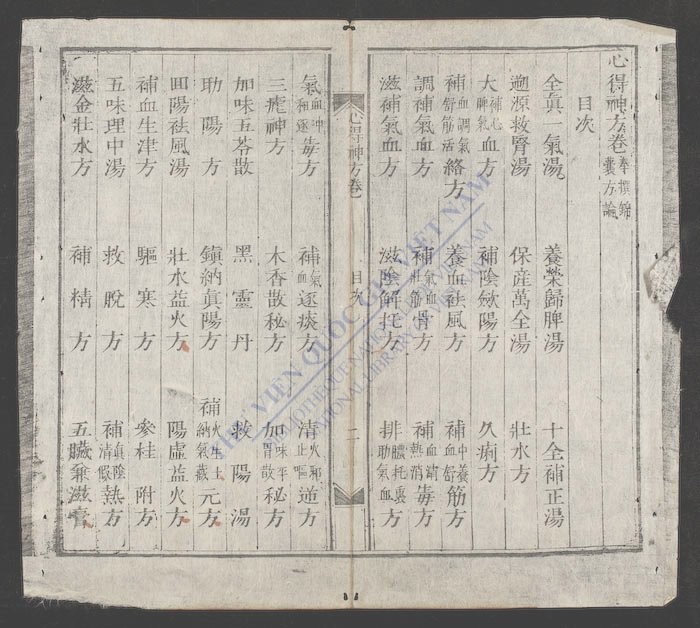 心得神方卷 奉撰錦囊方論
目次
全眞一氣湯 養榮歸脾湯 十全補正湯
遡源救腎湯 保産萬全湯 壯水方
大補心脾氣血方 補陰斂陽方 久痢方
補血調氣舒筋活絡方 養血祛風方 補中養血舒筋方
調補氣血方 補氣血壯筋骨方 補血清熱消毒方
滋補氣血方 滋陰解托方 排膿托裏助氣血方
心得神方卷 目次 二
氣血冲和逐毒方 補氣血逐痰方 清火止嘔逆方
三瘧神方 木香散秘方 加味平胃散秘方
加味五苓散 黑靈丹 救陽湯
助陽方 鎭納眞陽方 補火生土納氣藏元方
回陽祛風湯 壯水益火方 陽虛益火方
補血生津方 驅寒方 參桂附方
五味理中湯 救脫方 補眞陰清假熱方
滋金壯水方 補精方 五臟兼滋膏
THƯ VIỆN QUỐC GIA VIỆT NAM
BIBLIOTHEQUE NATIONALE DU VIETNAM
NATIONAL LIBRARY OF VIETNAM